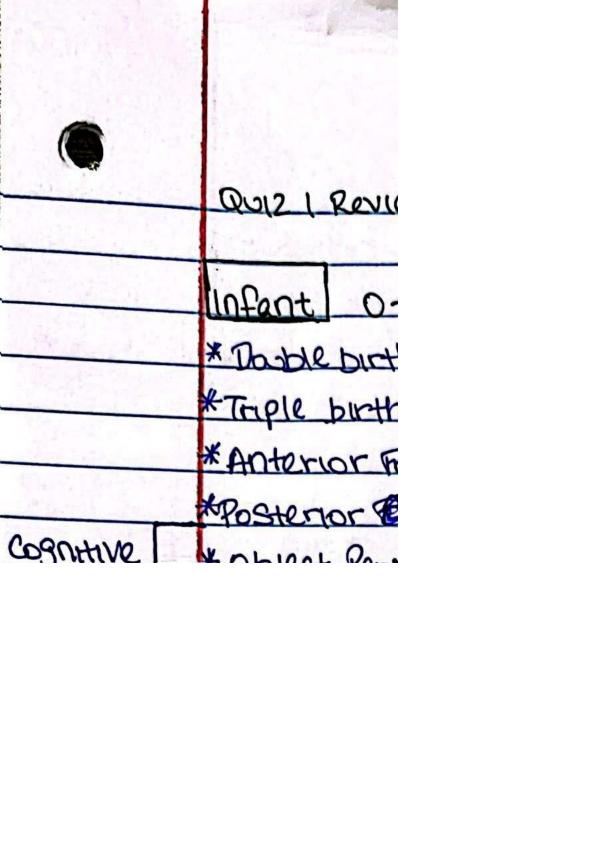 Quiz 1 Revie
Infant 0-
* Double birth
* Triple birth
* Anterior F
* Posterior
Cognitive * Object Per